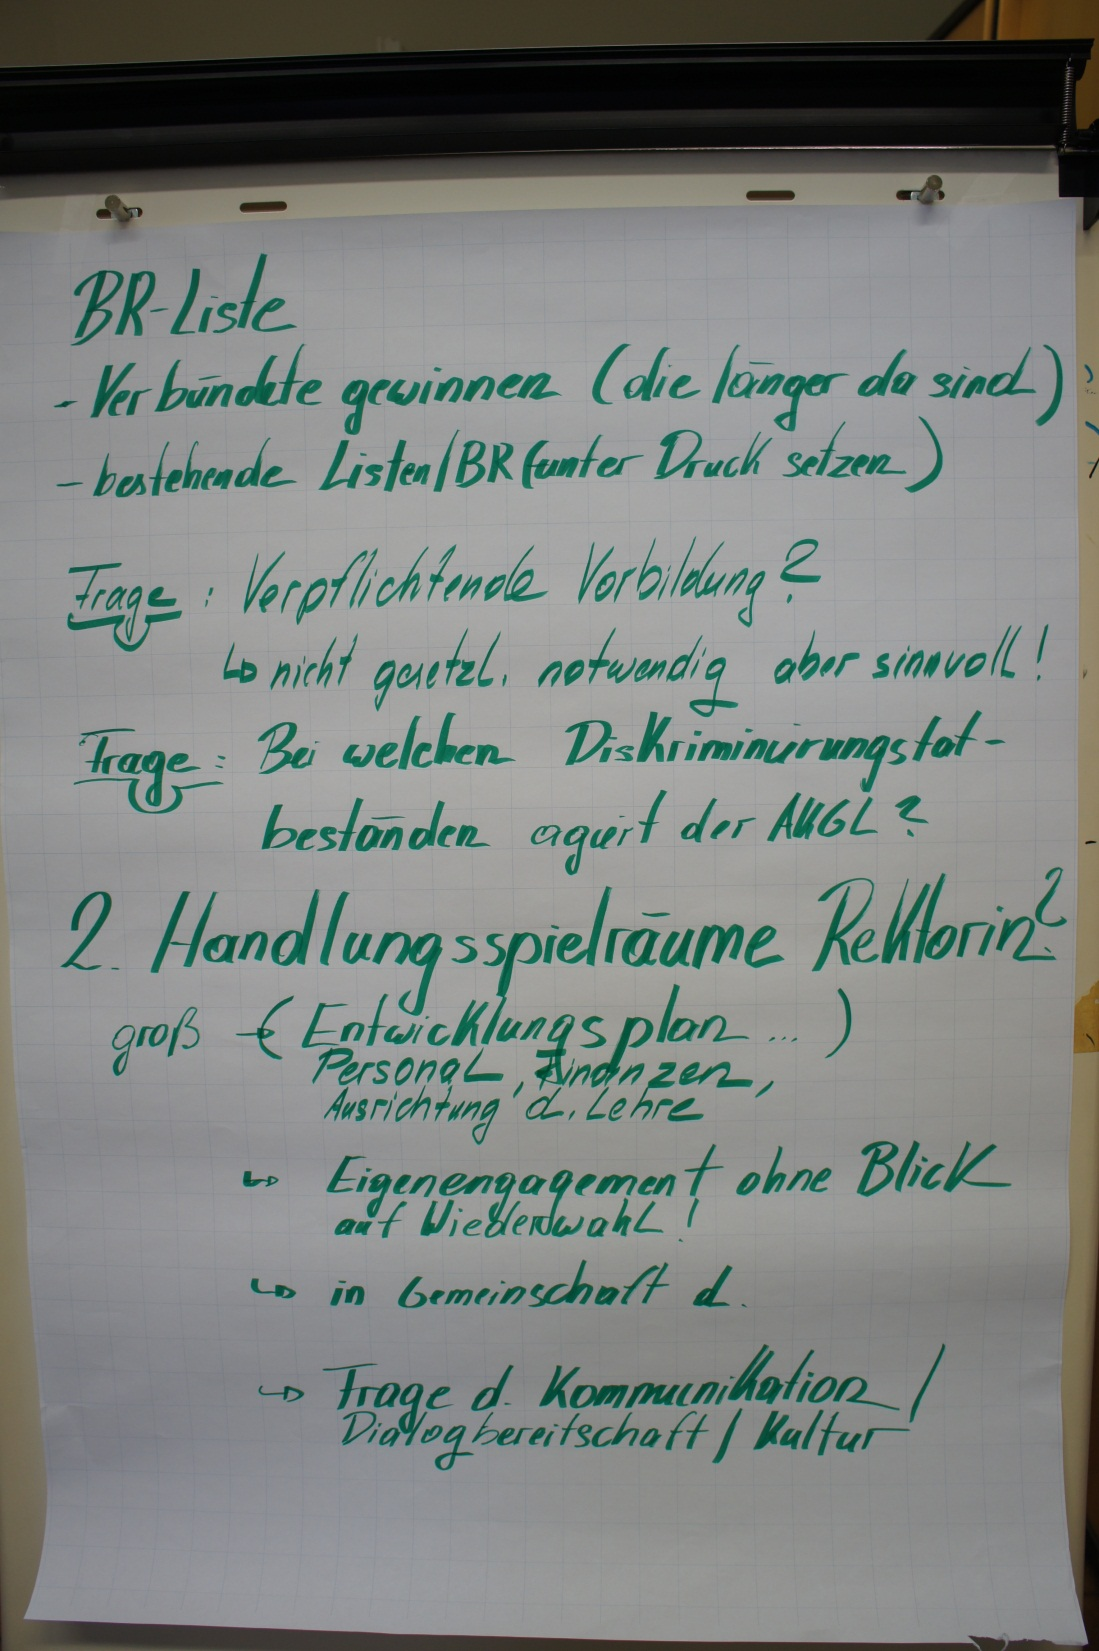 BR-Liste
- Verbündete gewinnen (die länger da sind)
- bestehende Listen/BR (unter Druck setzen)
Frage: Verpflichtende Vorbildung?
↳ nicht gesetzl. notwendig aber sinnvoll!
Frage: Bei welchen Diskriminierungstat-
beständen agiert der AKGL?
2. Handlungsspielräume Rektorin?
groß → (Entwicklungsplan ... )
Personal, Finanzen,
Ausrichtung d. Lehre
↳ Eigenengagement ohne Blick
auf Wiederwahl!
↳ in Gemeinschaft d.
↳ Frage d. Kommunikation /
Dialogbereitschaft / Kultur